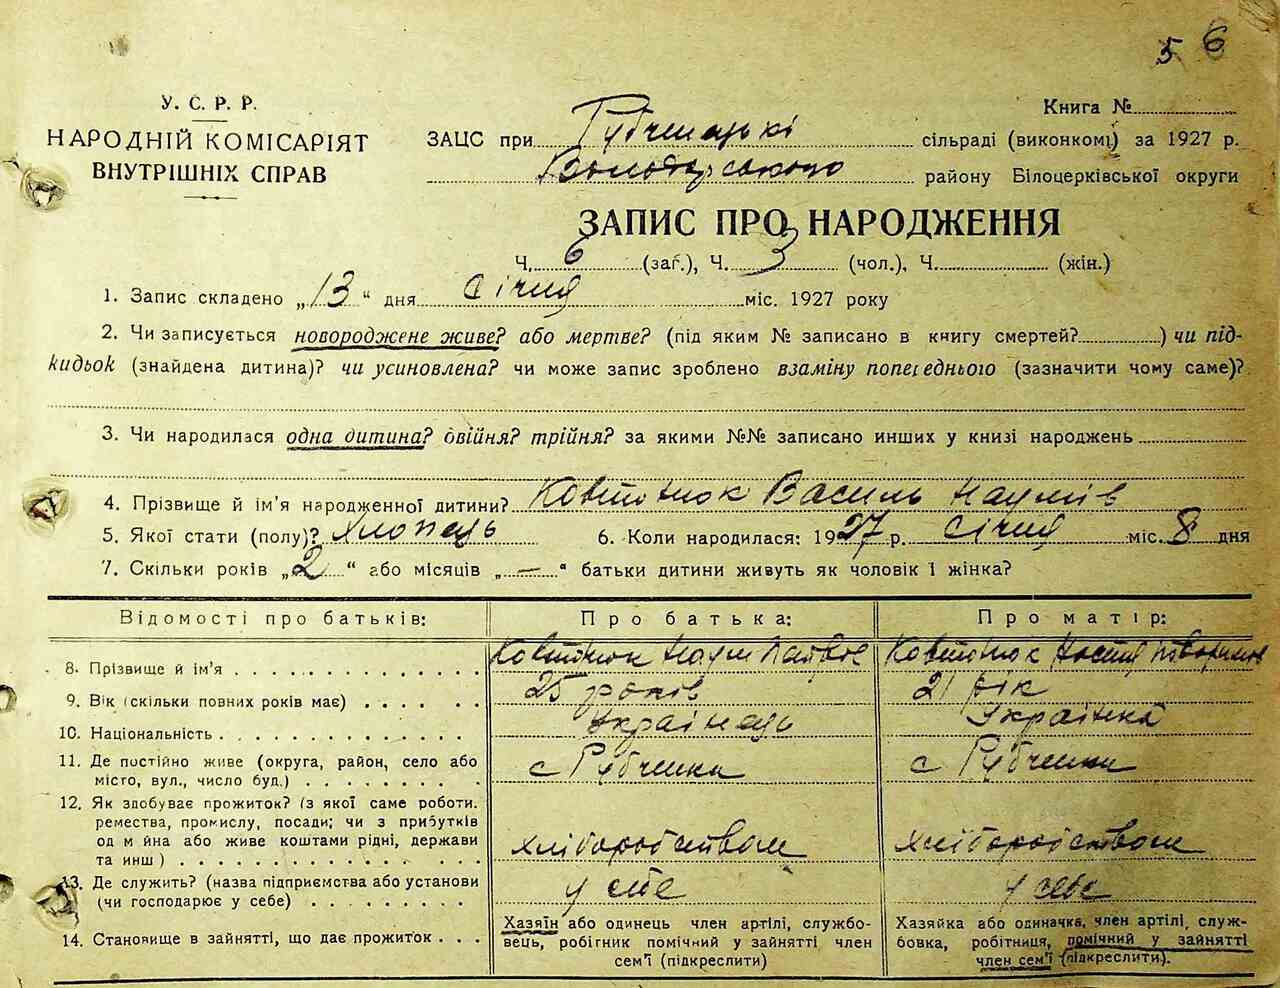 5 6
У. С. Р. Р.
НАРОДНІЙ КОМІСАРІЯТ
ВНУТРІШНІХ СПРАВ
Книга №
ЗАЦС при сільраді (виконкомі) за 1927 р.
Володарського району Білоцерківської округи
ЗАПИС ПРО НАРОДЖЕННЯ
Ч. 6 (заг.), Ч. 3 (чол.), Ч. (жін.)
1. Запис складено „13“ дня січня міс. 1927 року
2. Чи записується новороджене живе? або мертве? (під яким № записано в книгу смертей?) чи під-
кидьок (знайдена дитина)? чи усиновлена? чи може запис зроблено взаміну попереднього (зазначити чому саме)?
3. Чи народилася одна дитина? двійня? трійня? за якими №№ записано инших у книзі народжень
4. Прізвище й ім'я народженної дитини? Ковтонюк Василь Наумів
5. Якої стати (полу)? Хлопець 6. Коли народилася: 1927 р. січня міс. 8 дня
7. Скільки років „2“ або місяців „—“ батьки дитини живуть як чоловік і жінка?
Відомості про батьків: Про батька: Про матір:
8. Прізвище й ім'я Ковтонюк Наум Ковтонюк
9. Вік (скільки повних років має) 25 років 21 рік
10. Національність Українець Українка
11. Де постійно живе (округа, район, село або
місто, вул., число буд.) с Рубченки с Рубченки
12. Як здобуває прожиток? (з якої саме роботи.
ремества, промислу, посади; чи з прибутків
од м йна або живе коштами рідні, держави
та инш) хліборобством хліборобством
13. Де служить? (назва підприємства або установи
(чи господарює у себе) у себе у себе
14. Становище в зайнятті, що дає прожиток
Хазяїн або одинець член артілі, службо-
вець, робігник помічний у зайнятті член
сем'ї (підкреслити)
Хазяйка або одиначка, член артілі, служ-
бовка, робітниця, помічний у зайнятті
член сем'ї (підкреслити).